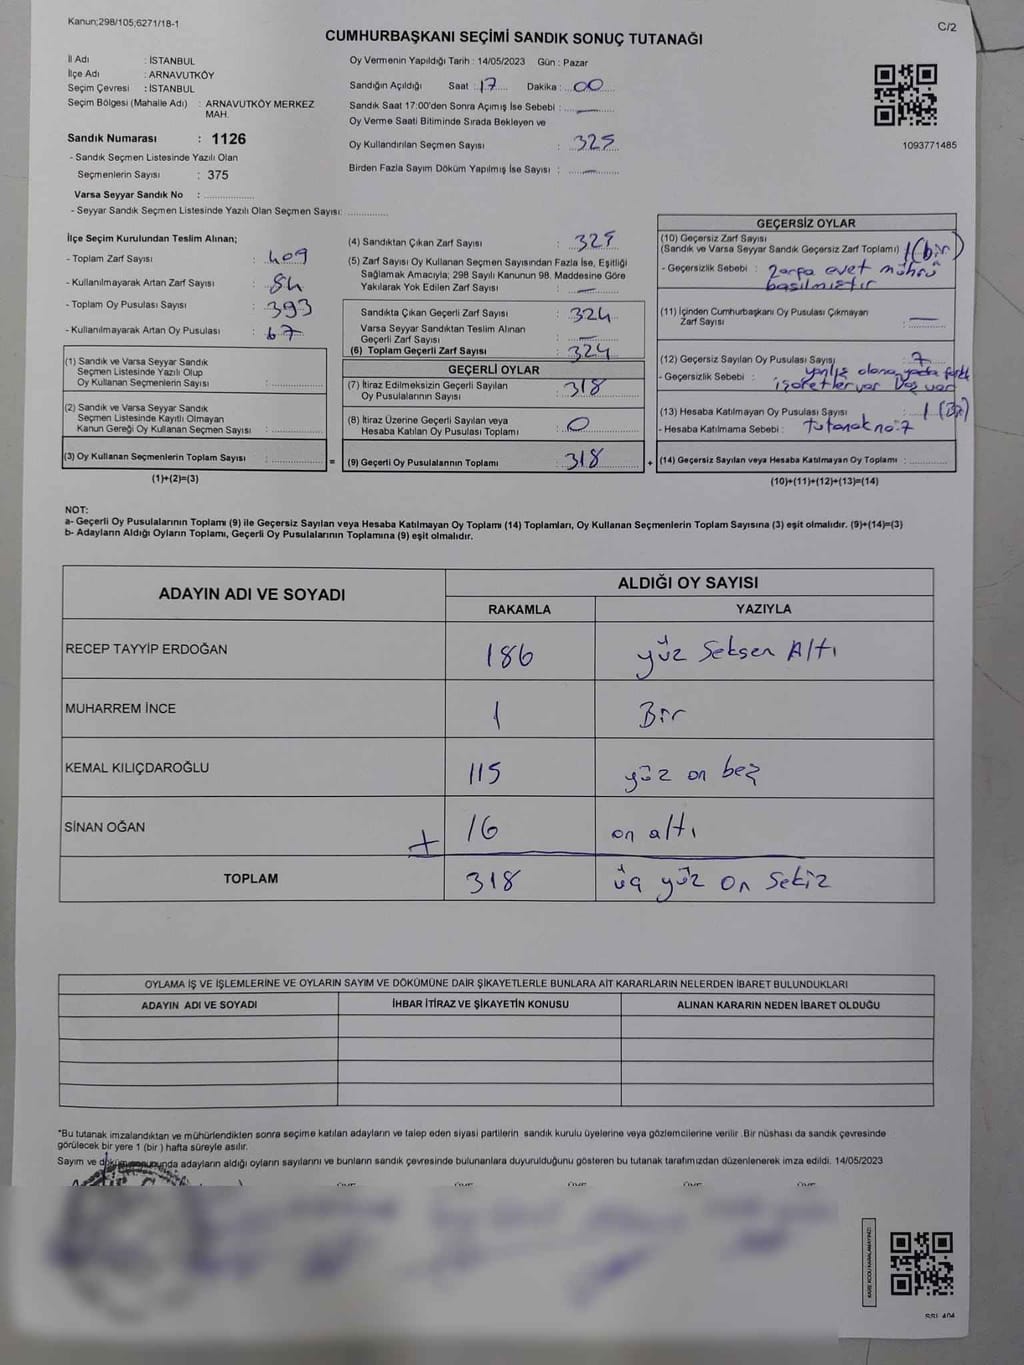 Kanun;298/105;6271/18-1
C/2
CUMHURBAŞKANI SEÇİMİ SANDIK SONUÇ TUTANAĞI
İl Adı : İSTANBUL
İlçe Adı : ARNAVUTKÖY
Seçim Çevresi : İSTANBUL
Seçim Bölgesi (Mahalle Adı) : ARNAVUTKÖY MERKEZ
MAH.
Sandık Numarası : 1126
- Sandık Seçmen Listesinde Yazılı Olan
Seçmenlerin Sayısı : 375
Varsa Seyyar Sandık No :
- Seyyar Sandık Seçmen Listesinde Yazılı Olan Seçmen Sayısı:
Oy Vermenin Yapıldığı Tarih : 14/05/2023 Gün : Pazar
Sandığın Açıldığı Saat : 17 Dakika : 00
Sandık Saat 17:00'den Sonra Açımış İse Sebebi : —
Oy Verme Saati Bitiminde Sırada Bekleyen ve
Oy Kullandırılan Seçmen Sayısı : 325
Birden Fazla Sayım Döküm Yapılmış İse Sayısı : —
1093771485
İlçe Seçim Kurulundan Teslim Alınan;
- Toplam Zarf Sayısı : 409
- Kullanılmayarak Artan Zarf Sayısı : 84
- Toplam Oy Pusulası Sayısı : 393
- Kullanılmayarak Artan Oy Pusulası : 67
(1) Sandık ve Varsa Seyyar Sandık
Seçmen Listesinde Yazılı Olup
Oy Kullanan Seçmenlerin Sayısı :
(2) Sandık ve Varsa Seyyar Sandık
Seçmen Listesinde Kayıtlı Olmayan
Kanun Gereği Oy Kullanan Seçmen Sayısı :
(3) Oy Kullanan Seçmenlerin Toplam Sayısı : =
(1)+(2)=(3)
(4) Sandıktan Çıkan Zarf Sayısı : 325
(5) Zarf Sayısı Oy Kullanan Seçmen Sayısından Fazla İse, Eşitliği
Sağlamak Amacıyla; 298 Sayılı Kanunun 98. Maddesine Göre
Yakılarak Yok Edilen Zarf Sayısı : —
Sandıkta Çıkan Geçerli Zarf Sayısı : 324
Varsa Seyyar Sandıktan Teslim Alınan
Geçerli Zarf Sayısı : —
(6) Toplam Geçerli Zarf Sayısı : 324
GEÇERLİ OYLAR
(7) İtiraz Edilmeksizin Geçerli Sayılan
Oy Pusulalarının Sayısı : 318
(8) İtiraz Üzerine Geçerli Sayılan veya
Hesaba Katılan Oy Pusulası Toplamı : 0
(9) Geçerli Oy Pusulalarının Toplamı : 318 +
GEÇERSİZ OYLAR
(10) Geçersiz Zarf Sayısı
(Sandık ve Varsa Seyyar Sandık Geçersiz Zarf Toplamı) 1 (bir)
- Geçersizlik Sebebi : zarfa evet mührü
basılmıştır
(11) İçinden Cumhurbaşkanı Oy Pusulası Çıkmayan
Zarf Sayısı : —
(12) Geçersiz Sayılan Oy Pusulası Sayısı : 7
- Geçersizlik Sebebi : yanlış olana yada farklı
işaretler var Boş var
(13) Hesaba Katılmayan Oy Pusulası Sayısı : 1 (Bir)
- Hesaba Katılmama Sebebi : tutanak no:7
(14) Geçersiz Sayılan veya Hesaba Katılmayan Oy Toplamı :
(10)+(11)+(12)+(13)=(14)
NOT:
a- Geçerli Oy Pusulalarının Toplamı (9) ile Geçersiz Sayılan veya Hesaba Katılmayan Oy Toplamı (14) Toplamları, Oy Kullanan Seçmenlerin Toplam Sayısına (3) eşit olmalıdır. (9)+(14)=(3)
b- Adayların Aldığı Oyların Toplamı, Geçerli Oy Pusulalarının Toplamına (9) eşit olmalıdır.
ADAYIN ADI VE SOYADI ALDIĞI OY SAYISI
RAKAMLA YAZIYLA
RECEP TAYYİP ERDOĞAN 186 yüz Seksen Altı
MUHARREM İNCE 1 Bir
KEMAL KILIÇDAROĞLU 115 yüz on beş
SİNAN OĞAN + 16 on altı
TOPLAM 318 üç yüz On Sekiz
OYLAMA İŞ VE İŞLEMLERİNE VE OYLARIN SAYIM VE DÖKÜMÜNE DAİR ŞİKAYETLERLE BUNLARA AİT KARARLARIN NELERDEN İBARET BULUNDUKLARI
ADAYIN ADI VE SOYADI İHBAR İTİRAZ VE ŞİKAYETİN KONUSU ALINAN KARARIN NEDEN İBARET OLDUĞU
*Bu tutanak imzalandıktan ve mühürlendikten sonra seçime katılan adayların ve talep eden siyasi partilerin sandık kurulu üyelerine veya gözlemcilerine verilir .Bir nüshası da sandık çevresinde
görülecek bir yere 1 (bir ) hafta süreyle asılır.
Sayım ve dökümonununda adayların aldığı oyların sayılarını ve bunların sandık çevresinde bulunanlara duyurulduğunu gösteren bu tutanak tarafımızdan düzenlenerek imza edildi. 14/05/2023
KARE KODU KARALAMAYINIZ!